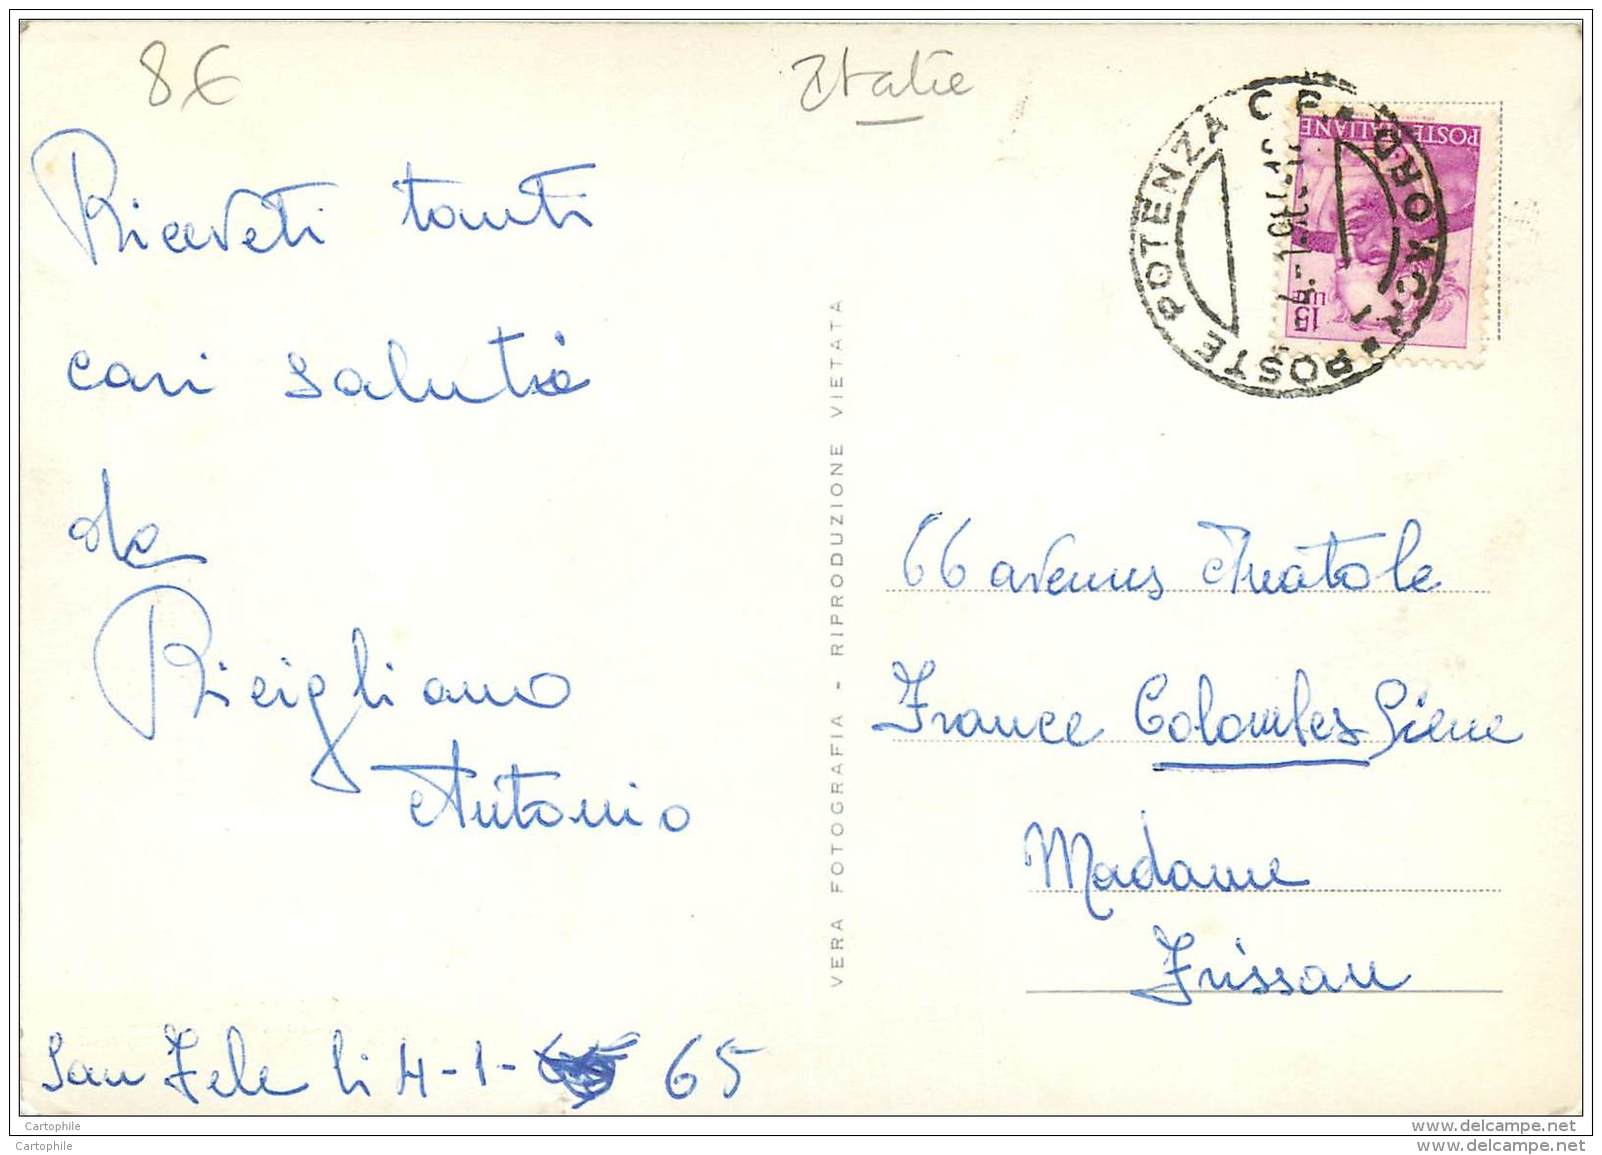 8€
Italie
Riceveti tanti
cari saluti
da
Ricigliano
Antonio
San Fele li 4-1- 65
VERA FOTOGRAFIA - RIPRODUZIONE VIETATA
POSTE POTENZA C.P.
POSTE ITALIANE
15
LIRE
66 avenus Anatole
France Colombes Siene
Madame
Frissau
Cartophile
Cartophile
www.delcampe.net
www.delcampe.net